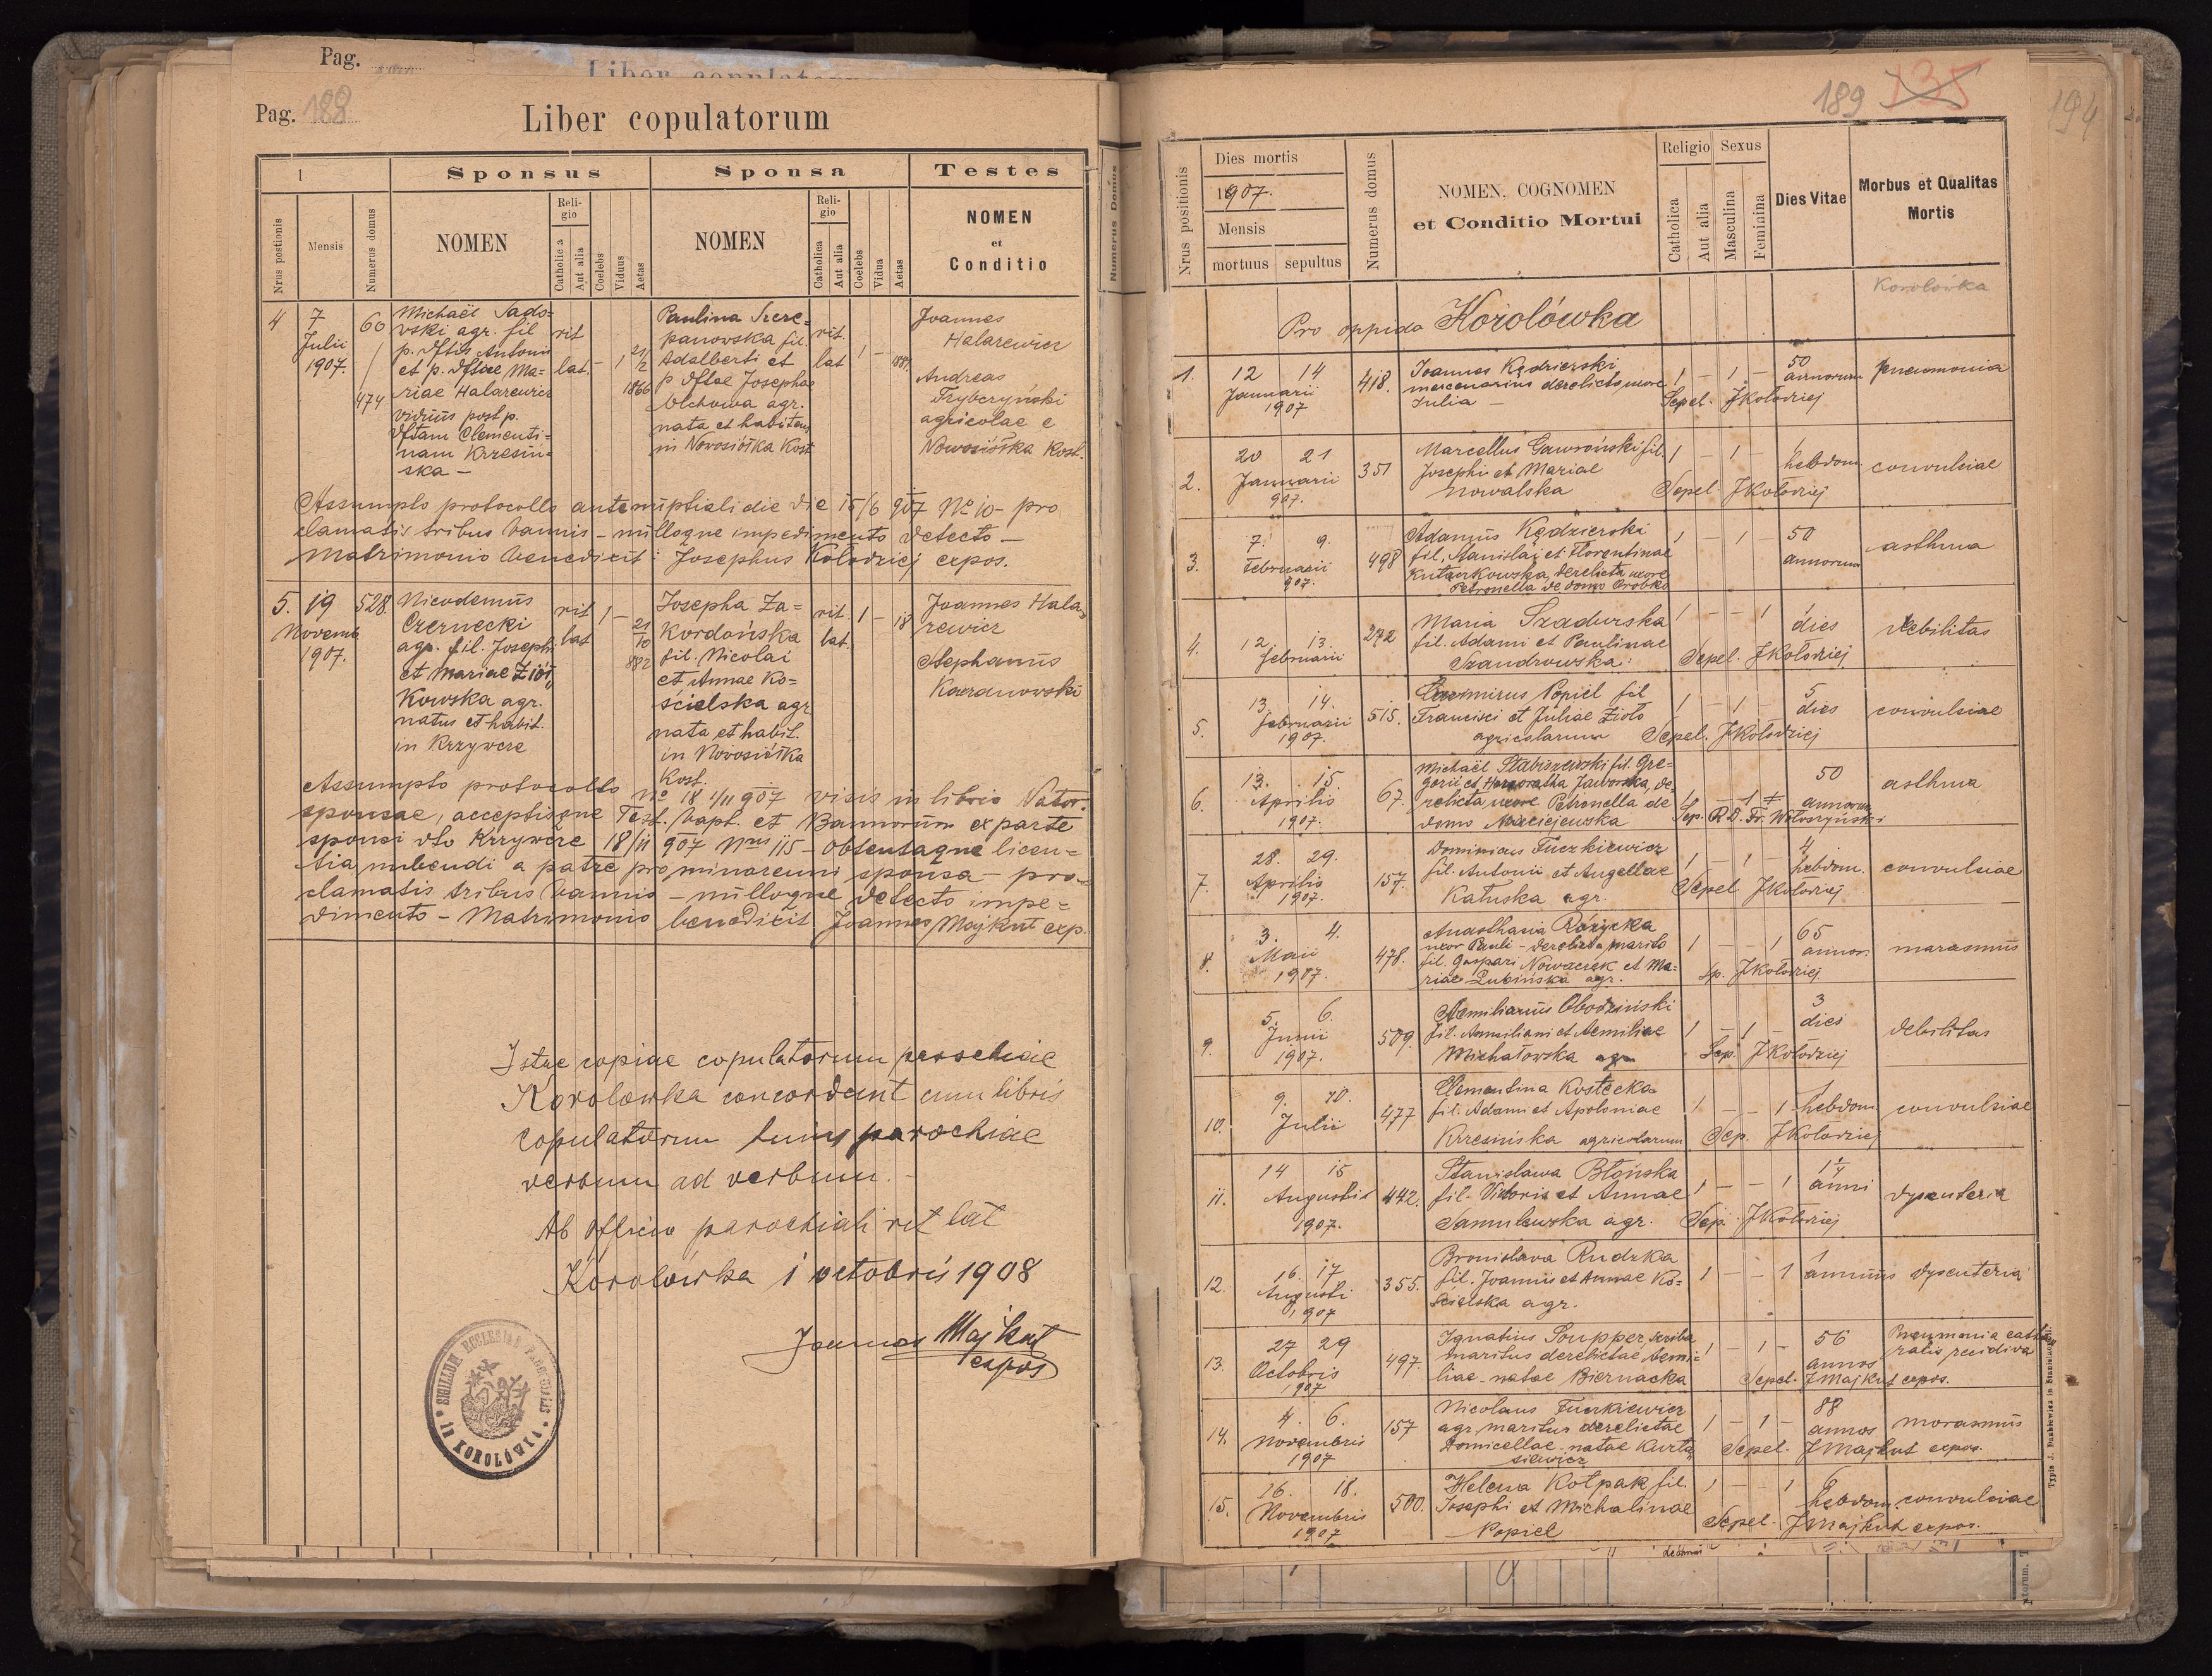 Pag.
Pag. 188
Liber copulatorum
1
Sponsus
Sponsa
Testes
Nrus postionis
Mensis
Numerus domus
NOMEN
Reli-
gio
Catholica
Aut alia
Coelebs
Viduus
Aetas
NOMEN
Reli-
gio
Catholica
Aut alia
Coelebs
Vidua
Aetas
NOMEN
et
Conditio
4
7
Julii
1907.
60
474
Michaël Sado=
wski agr. fil
p. dftis Antonii
et p. dftae Ma=
riae Halarewicz
viduus post p.
dftam Clementi=
nam Krzesin=
ska –
rit
lat.
– 1
21/2
1866
Paulina Szcze=
panowska fil.
Adalberti et
p dftae Josephae
Olchowa agr.
nata et habitans
in Nowosiółka Kost
rit.
lat
1 –
1889.
Joannes
Halarewicz
Andreas
Trybczyński
agricolae e
Nowosiółka Kost.
Assumpto protocollo antenuptiali die 15/6 907 No 10 – pro
clamatis tribus bannis – nulloque impedimento detecto –
Matrimonio benedixit: Josephus Kołodziej expos.
5.
19
Novemb
1907.
528.
Nicodemus
Czernecki
agr. fil. Josephi
et Mariae Ziół
Kowska agr.
natus et habit.
in Krzywcze
rit
lat
1 –
21/10
882
Josepha Za=
Kordońska
fil. Nicolai
et Annae Ko=
ścielska agr
nata et habit.
in Nowosiółka
Kost.
rit.
lat.
1 –
18
Joannes Hala=
rewicz
Stephanus
Karanowski
Assumpto protocollo No 18 1/11 907 visis in libris Nator.
sponsae, acceptisque Test. bapt. et Bannorum ex parte
sponsi dto Krzywcze 18/11 907 Nrus 115 – obtentaque licen=
tia nubendi a patre pro minorenni sponsa – pro=
clamatis tribus bannis – nulloque detecto impe=
dimento – Matrimonio benedixit Joannes Majkut exp.
Istae copiae copulatorum parochiae
Korolówka concordant cum libris
copulatorum huius parochiae
verbum ad verbum. –
Ab officio parochiali rit lat
Korolówka 1 octobris 1908
Joannes Majkut
expos
SIGILLUM ECCLESIAE PAROCHIALIS
IN KOROLÓWKA
Numerus Domus
189
135
194
Nrus positionis
Dies mortis
1907.
Mensis
mortuus
sepultus
Numerus domus
NOMEN, COGNOMEN
et Conditio Mortui
Religio
Catholica
Aut alia
Sexus
Masculina
Feminina
Dies Vitae
Morbus et Qualitas
Mortis
Korolówka
Pro oppido Korolówka
1.
12 14
Januarii
1907
418.
Joannes Kędzierski
mercenarius derelicta uxore
Julia –
1 – 1 –
Sepel. JKołodziej
50
annorum
pneumonia
2.
20 21
Januarii
907.
351
Marcellus Gawroński fil.
Josephi et Mariae
Nowalska
1 – 1 –
Sepel JKołodziej
hebdom
convulsiae
3.
7. 9.
Februarii
907.
498
Adamus Kędzierski
fil. Stanislai et Florentinae
Kutarkowska, derelicta uxore
Petronella de domo Orobko
1 – 1 –
50
annorum
asthma
4.
12. 13.
Februarii
272
Maria Szadurska
fil. Adami et Paulinae
Szandrowska:
1 – – 1
Sepel. JKołodziej
dies
debilitas
5.
13. 14.
Februarii
1907.
515.
Casimirus Popiel fil
Francisci et Juliae Zioło
agricolarum
1 – 1 –
Sepel. JKołodziej
5
dies
convulsiae
6.
13. 15.
Aprilis
1907.
67.
Michaël Stabiszewski fil. Gre=
gorii et Honoratha Jaworska, de=
relicta uxore Petronella de
domo Maciejewska
1 – 1
Sep. R. D. Fr. Wołoszyński
50
annorum
asthma
7.
28. 29.
Aprilis
1907.
157.
Dominicus Fuczkiewicz
fil. Antonii et Angellae
Katuska agr.
1 – 1 –
Sepel JKołodziej
4
hebdom.
convulsiae
8.
3. 4.
Maii
1907.
478.
Anasthasia Różycka
uxor Pauli – derelicto marito
fil. Gaspari Nowaczek et Ma=
riae Lubińska agr.
1 – – 1
Sp. JKołodziej
65
annor.
marasmus
9.
5. 6.
Junii
1907.
509.
Aemilianus Obodziński
fil. Aemiliani et Aemiliae
Michałowska agr
1 – 1 –
Sep. JKołodziej
3
dies
debilitas
10.
9. 10.
Julii
477
Clementina Kostecka
fil. Adami et Apoloniae
Krzesińska agricolarum
1 – – 1
Sep. JKołodziej
hebdom
convulsiae
11.
14 15
Augusti
1907.
442.
Stanislawa Błońska
fil. Victoris et Annae
Samulewska agr.
1 – – 1
Sep. JKołodziej
anni
dysenteria
12.
16. 17
Augusti
1907
355.
Bronislava Rudzka
fil. Joannis et Annae Ko=
ścielska agr.
1 – – 1
1
annus
dysenteria
13.
27 29
Octobris
1907
497.
Ignatius Soupper, scriba
maritus derelictae Aemi=
liae – natae Biernacka
1 – 1 –
Sepel. JMajkut expos.
56
annos
Pneumonia catha
ralis recidiva
14.
4. 6.
Novembris
1907
157
Nicolaus Fuczkiewicz
agr. maritus derelictae
Domicellae – natae Kurta
siewicz
1 – 1 –
Sepel. JMajkut expos.
88
annos
morasmus
15.
16. 18.
Novembris
1907
500.
Helena Kołpak fil.
Josephi et Michalinae
Popiel
1 – – 1
Sepel. JMajkut expos.
6
hebdom.
convulsiae
Typis J. Dankiewicz in Stanislau